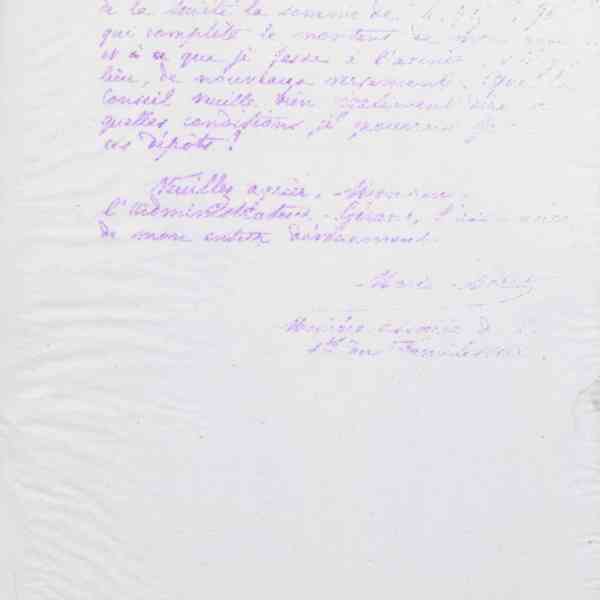 de la Société la somme de
qui complète le montant de mon
et à ce que je fasse à l'avenir, s'il y a
lieu, de nouveaux versements. Que le
Conseil veuille bien également dire à
quelles conditions je pourrais faire
ces dépôts !
Veuillez agréer, Monsieur
l'Administrateur-Gérant, l'assurance
de mon entier dévouement.
Marie
associée de
du Familistère